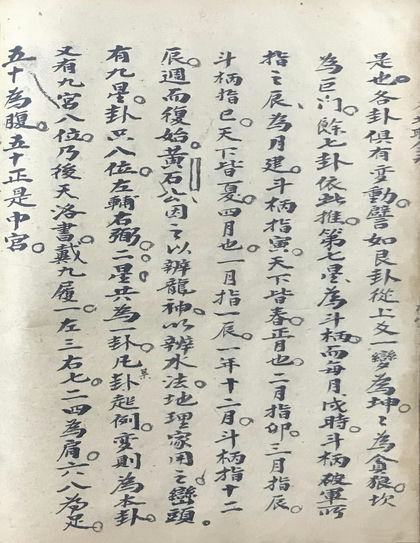 是也。各卦俱有变動。譬如艮卦從上爻一變為坤。〻為貪狼。坎
為巨门。餘七卦依此推。第七星為斗柄。而每月戌時。斗柄破軍所
指之辰、為月建。斗柄指寅。天下皆春。正月也。二月指卯。三月指辰。
斗柄指巳。天下皆夏。四月也。一月指一辰。一年十二月。斗柄指十二
辰。週而復始。黃石公因之以辨龍神。以辨水法。地理家用之巒頭。
有九星。卦只八位。左輔右弼。二星共為一卦。凡卦起例。変則為本卦。
又有九宮八位。乃後天洛書。戴九履一。左三右七。二四為肩。六八為足。
五十為腹。五十正是中宮。